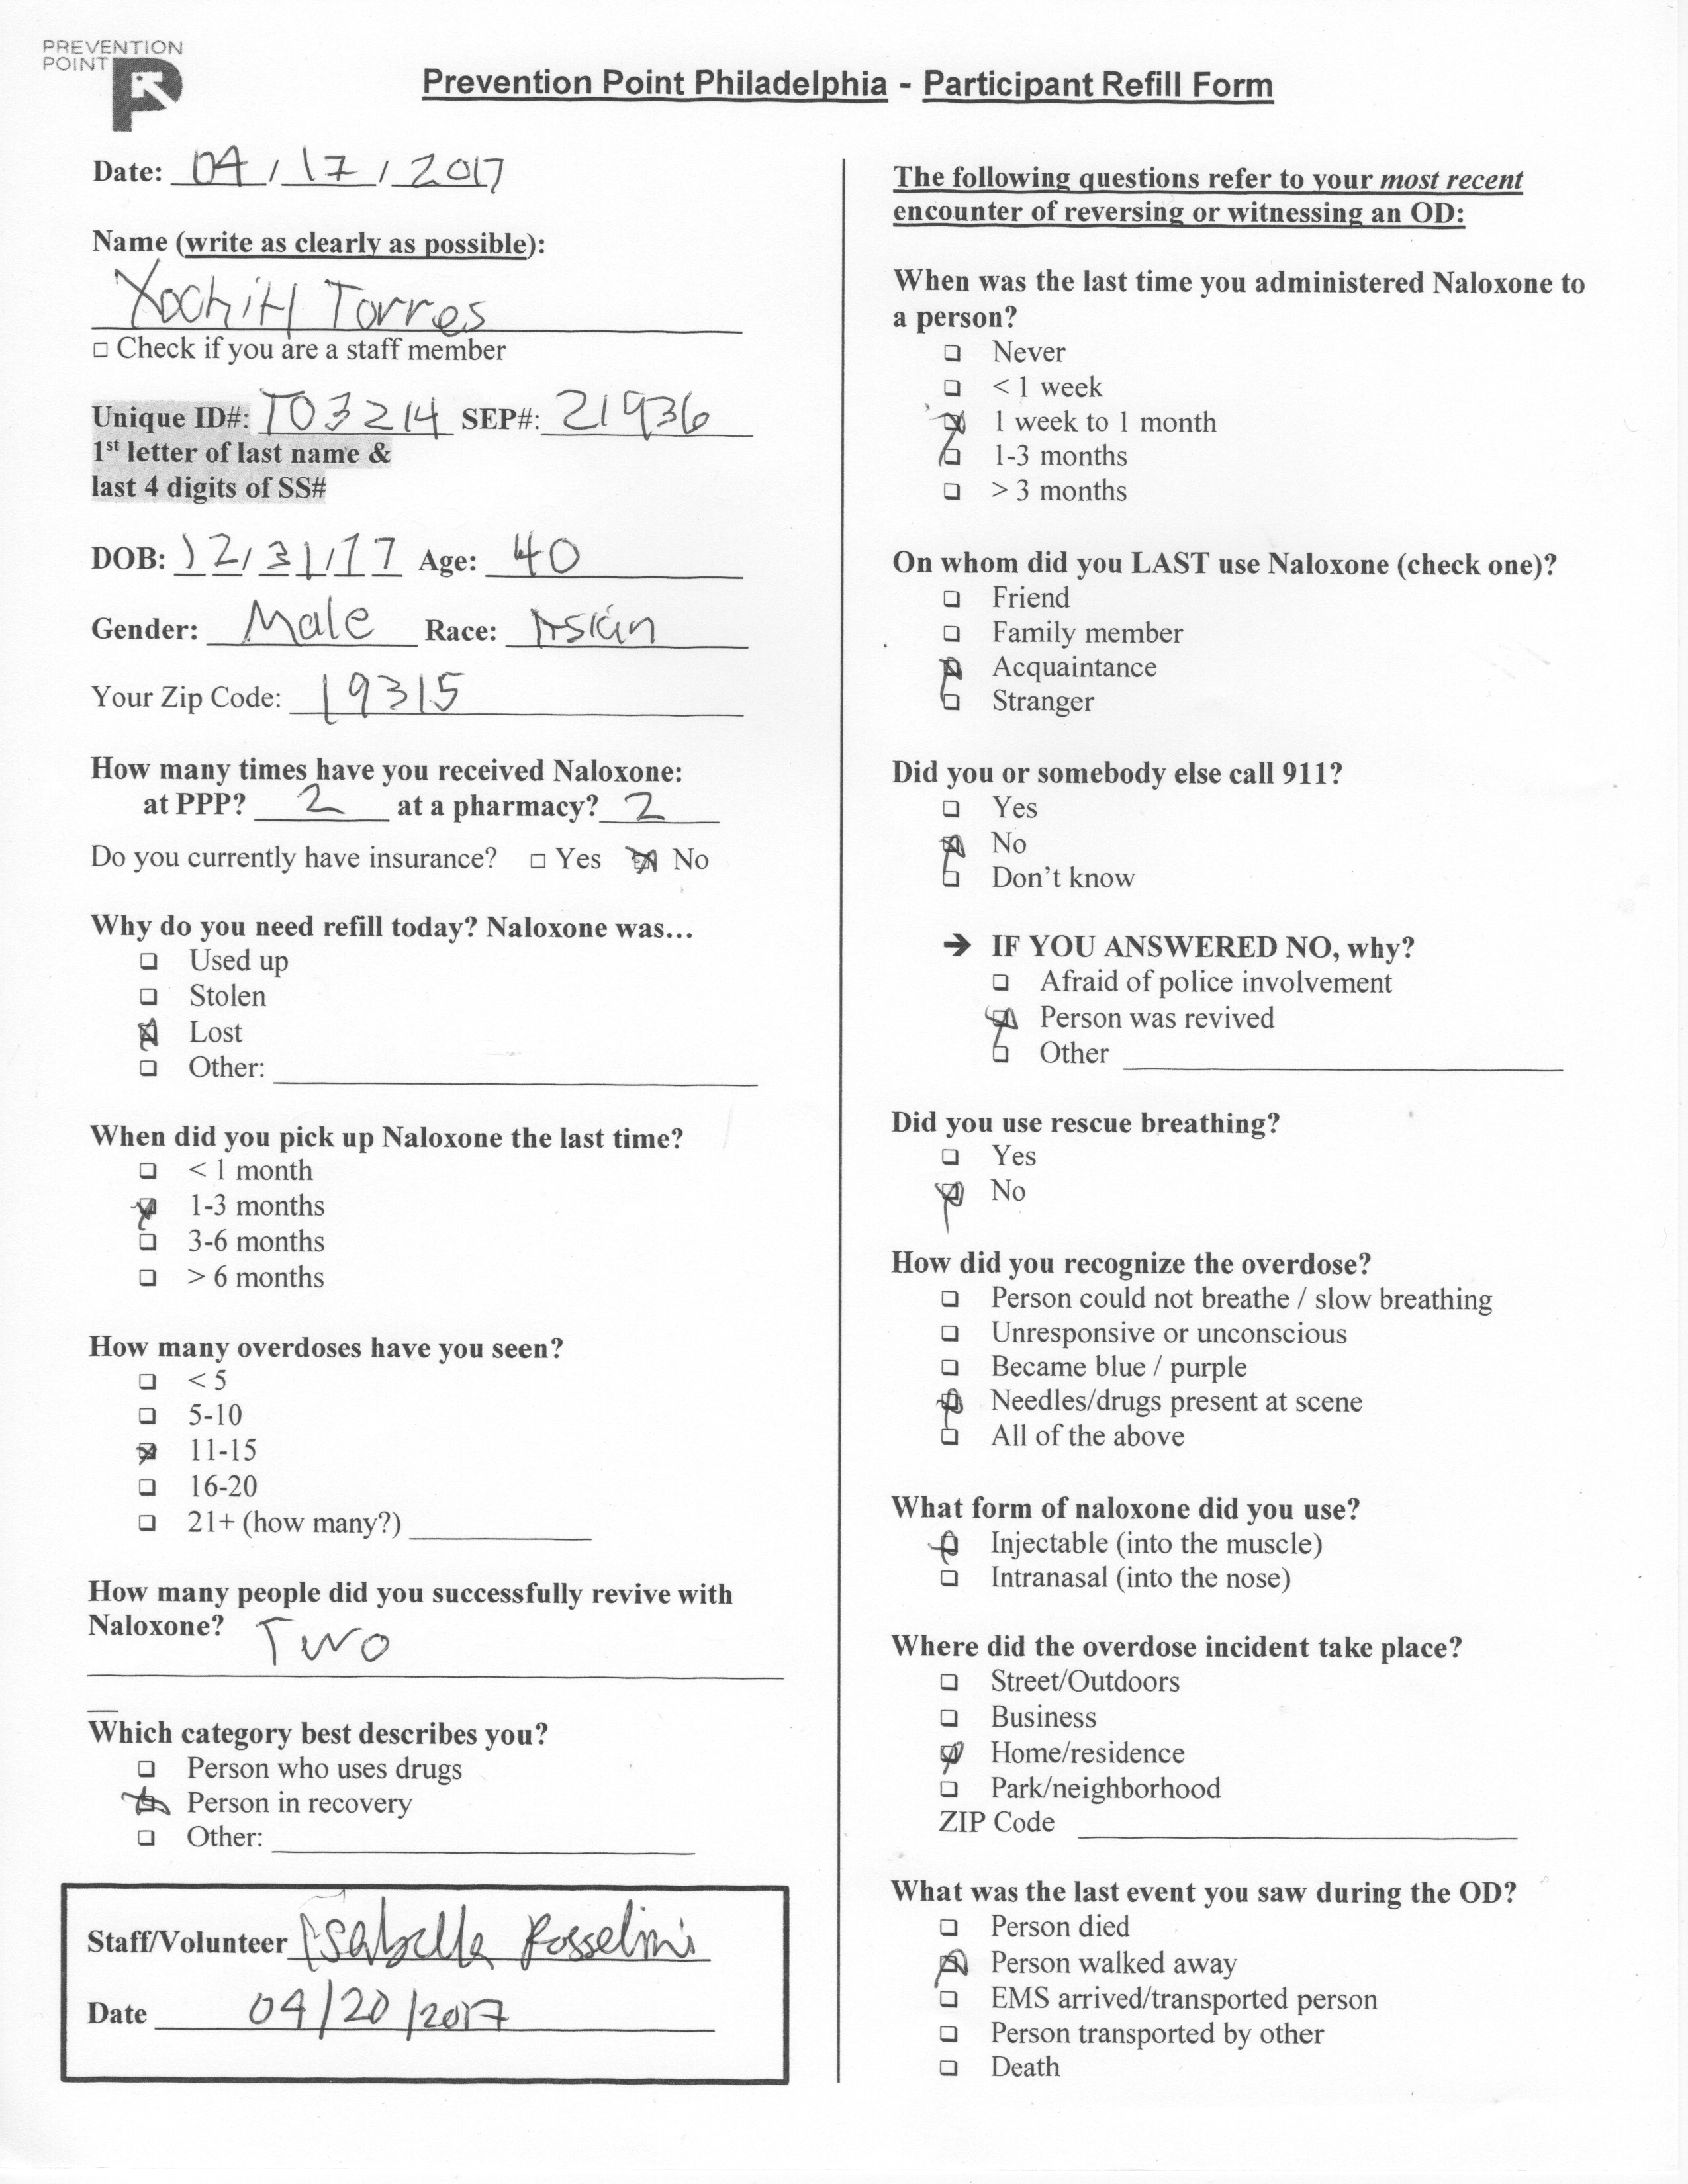 PREVENTION
POINT
Prevention Point Philadelphia - Participant Refill Form
Date: 04 / 17 / 2017
Name (write as clearly as possible):
Xochitl Torres
□ Check if you are a staff member
Unique ID#: T03214 SEP#: 21936
1st letter of last name &
last 4 digits of SS#
DOB: 12/31/77 Age: 40
Gender: Male Race: Asian
Your Zip Code: 19315
How many times have you received Naloxone:
at PPP? 2 at a pharmacy? 2
Do you currently have insurance? □ Yes ☒ No
Why do you need refill today? Naloxone was...
□ Used up
□ Stolen
☒ Lost
□ Other:
When did you pick up Naloxone the last time?
□ < 1 month
☒ 1-3 months
□ 3-6 months
□ > 6 months
How many overdoses have you seen?
□ < 5
□ 5-10
☒ 11-15
□ 16-20
□ 21+ (how many?)
How many people did you successfully revive with
Naloxone? Two
Which category best describes you?
□ Person who uses drugs
☒ Person in recovery
□ Other:
Staff/Volunteer Isabella Rosselini
Date 04/20/2017
The following questions refer to your most recent
encounter of reversing or witnessing an OD:
When was the last time you administered Naloxone to
a person?
□ Never
□ < 1 week
☒ 1 week to 1 month
□ 1-3 months
□ > 3 months
On whom did you LAST use Naloxone (check one)?
□ Friend
□ Family member
☒ Acquaintance
□ Stranger
Did you or somebody else call 911?
□ Yes
☒ No
□ Don't know
→ IF YOU ANSWERED NO, why?
□ Afraid of police involvement
☒ Person was revived
□ Other
Did you use rescue breathing?
□ Yes
☒ No
How did you recognize the overdose?
□ Person could not breathe / slow breathing
□ Unresponsive or unconscious
□ Became blue / purple
☒ Needles/drugs present at scene
□ All of the above
What form of naloxone did you use?
☒ Injectable (into the muscle)
□ Intranasal (into the nose)
Where did the overdose incident take place?
□ Street/Outdoors
□ Business
☒ Home/residence
□ Park/neighborhood
ZIP Code
What was the last event you saw during the OD?
□ Person died
☒ Person walked away
□ EMS arrived/transported person
□ Person transported by other
□ Death